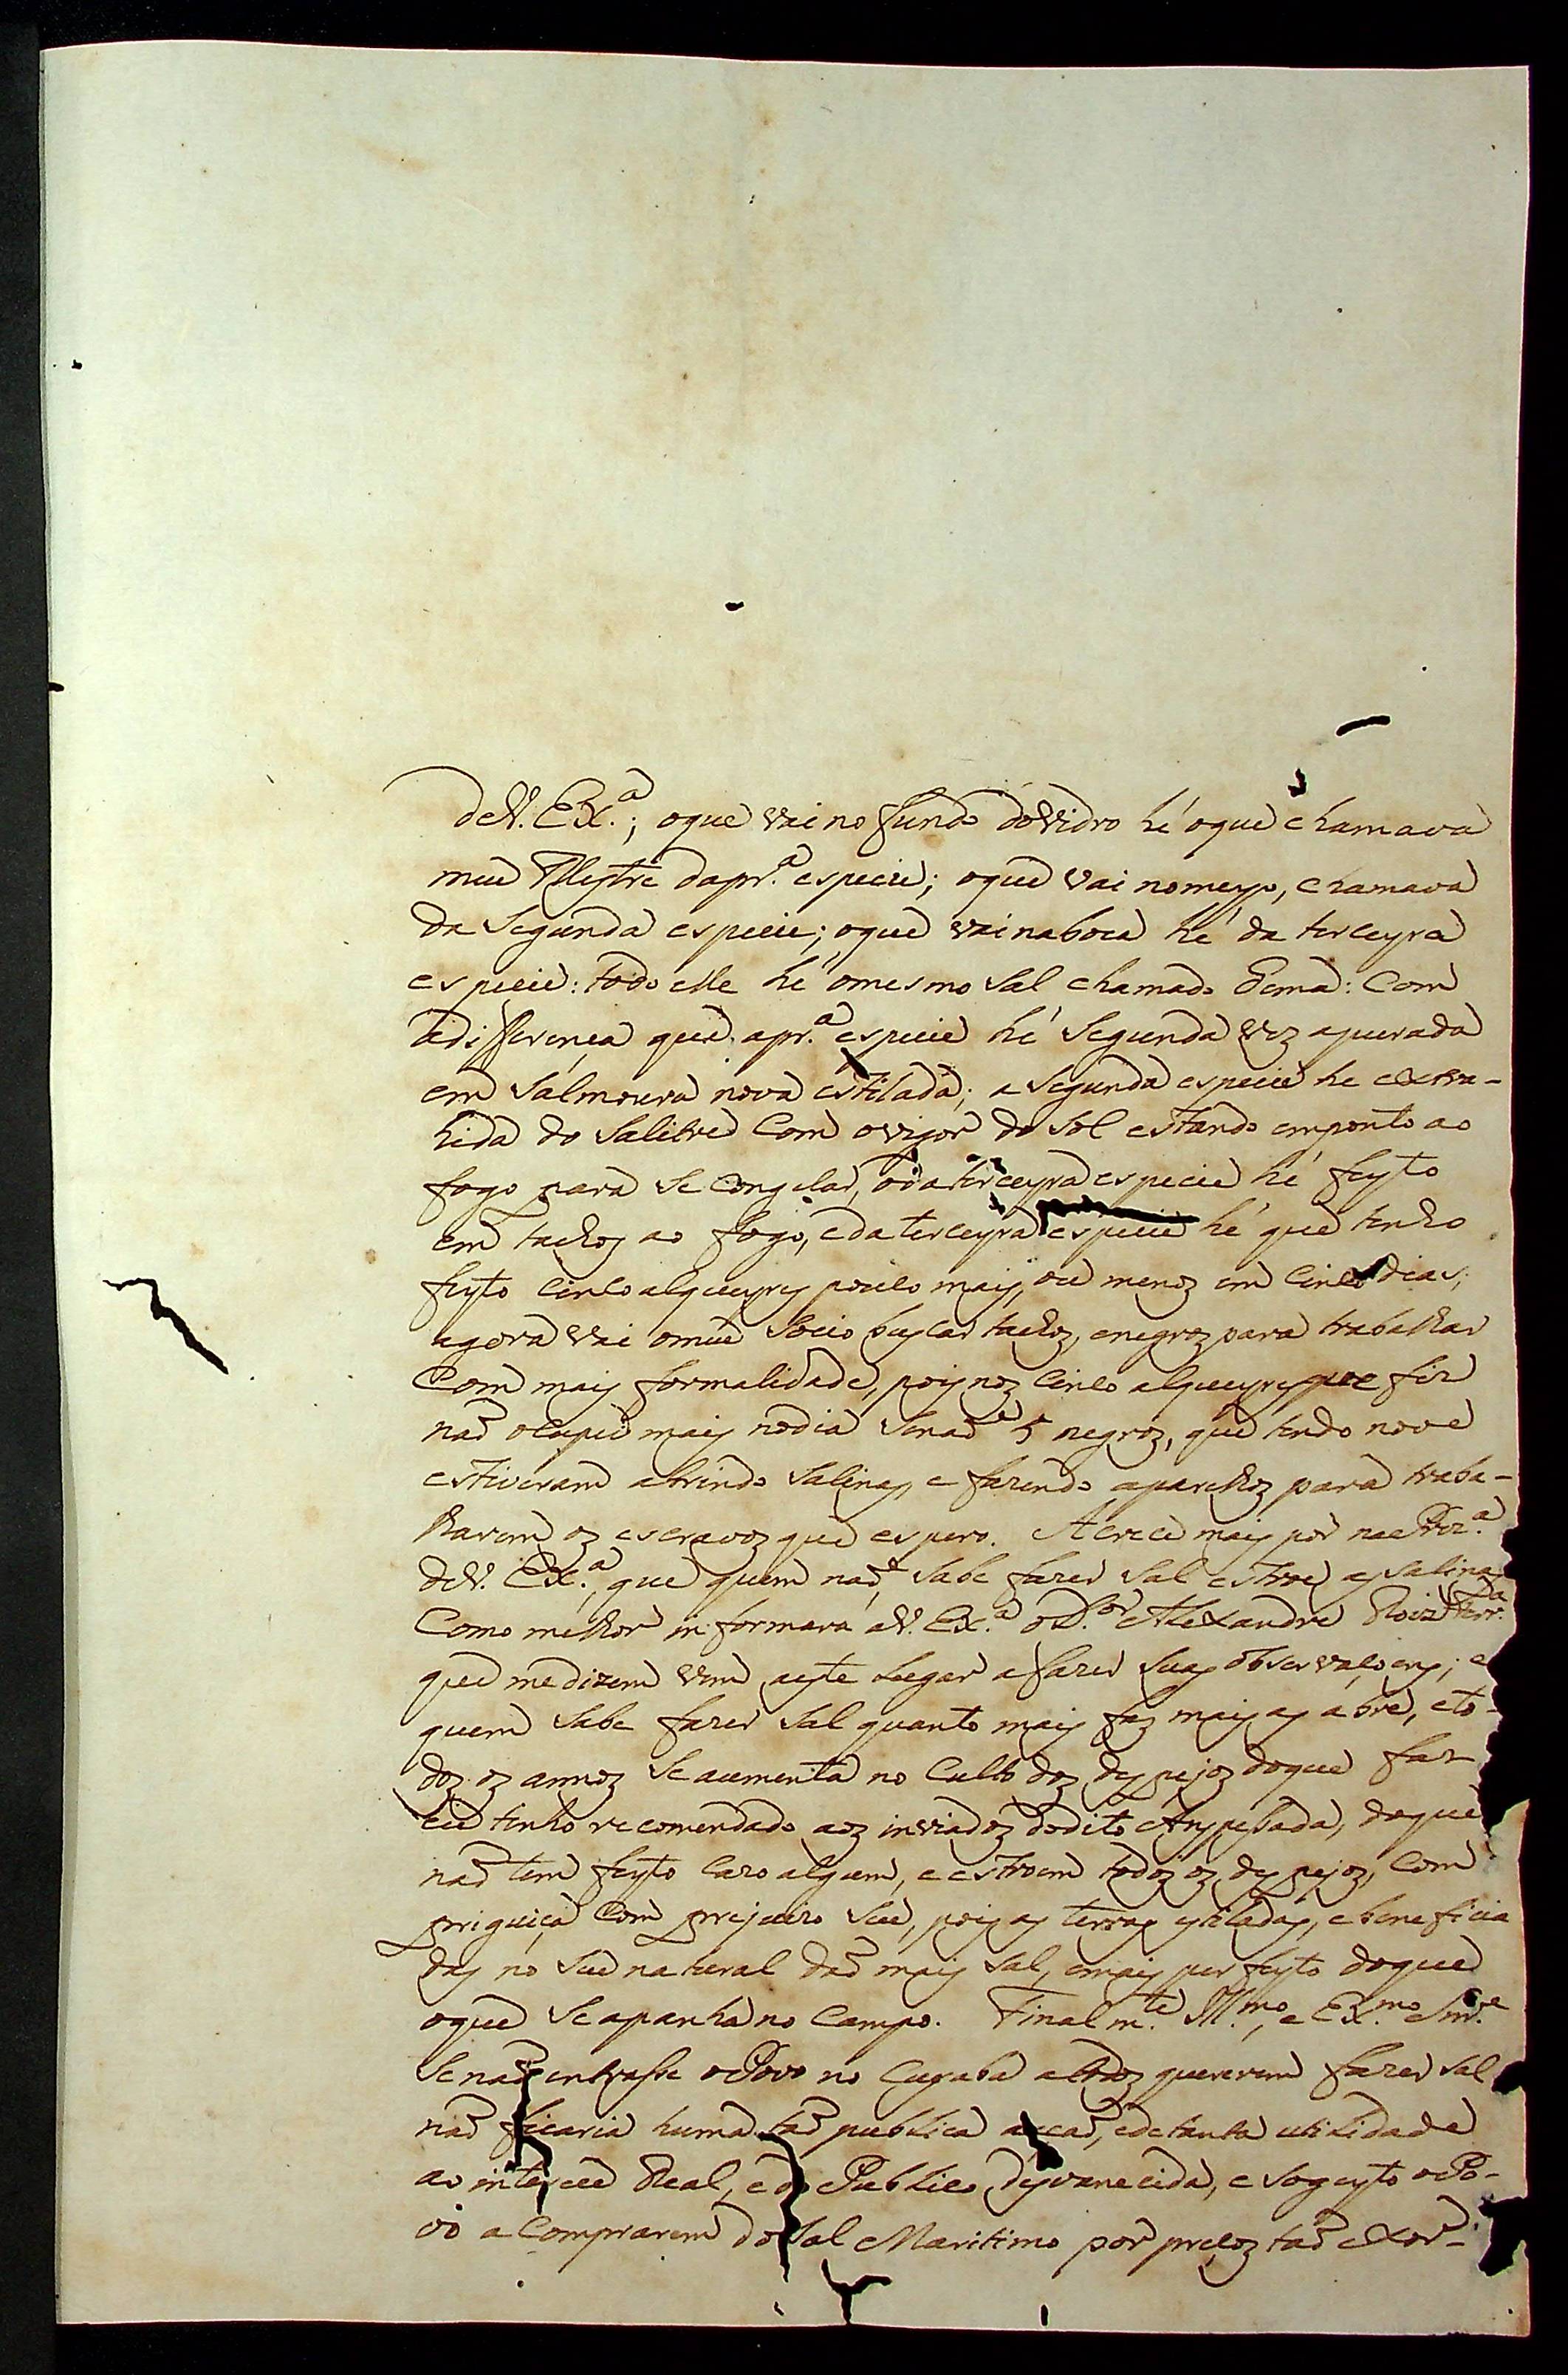 deV. Ex.ª; oque vai no fundo do Vidro hé oque chamava
meu Mestre dapr.ª especie; oque vai nomeyo, chamava
da Segunda especie; oque vai naboca hé da terceyra
especie: todo elle hé omesmo Sal chamado Gema: Com
adifferença que apr.ª especie hé Segunda vez apurada
em Salmoura nova estilada; a Segunda especie he extra-
hida do Salitre Com ovigor do Sol estando emponto ao
fogo para se Congelar, eda terceyra especie hé feyto
em tachos ao fogo, eda terceyra especie hé que tenho
feyto Cinco alqueyres pouco mais, ou menos em Cinco dias;
agora vai omeu Socio buscar tachos, enegros para trabalhar
Com mais formalidade, pois nos Cinco alqueyres que fiz
naõ ocupei mais nodia Senaõ 5 negros, que tendo nove
estiveram abrindo Salinas, e fazendo aparelhos para traba-
lharem os escravos que espero. Acrece mais por na Prez.ª
deV. Ex.ª, que quem naõ Sabe fazer Sal estroe as Salinas
Como melhor informara aV. Ex.ª oD.or Alexandre Roiz Ferr.ª
que medizem vem aeste Lugar afazer Suas observaçoens; e
quem Sabe fazer Sal quanto mais faz mais as abre, eto-
dos os annos Se aumenta no Culto dos despejos doque faz
eu tenho recomendado aos inviados dodito Anspesada, doque
naõ tem feyto Cazo algum, e estroem todos os despejos, Com
priguiça Com prejuizo Seu, pois as terras estiladas, e beneficia
das no Seu natural daõ mais Sal, emais perfeyto doque
oque Se apanha no Campo. Finalm.te Ill.mo, e Ex.mo Snr.e
Se naõ entrasse oPovo no Cuyaba atodos quererem fazer Sal
naõ ficaria huma taõ publica acçaõ, edetanta utilidade
ao interece Real, e do Publico, desvanecida, e Sogeyto oPo-
vo a Comprarem do Sal Maritimo por preços taõ exor-